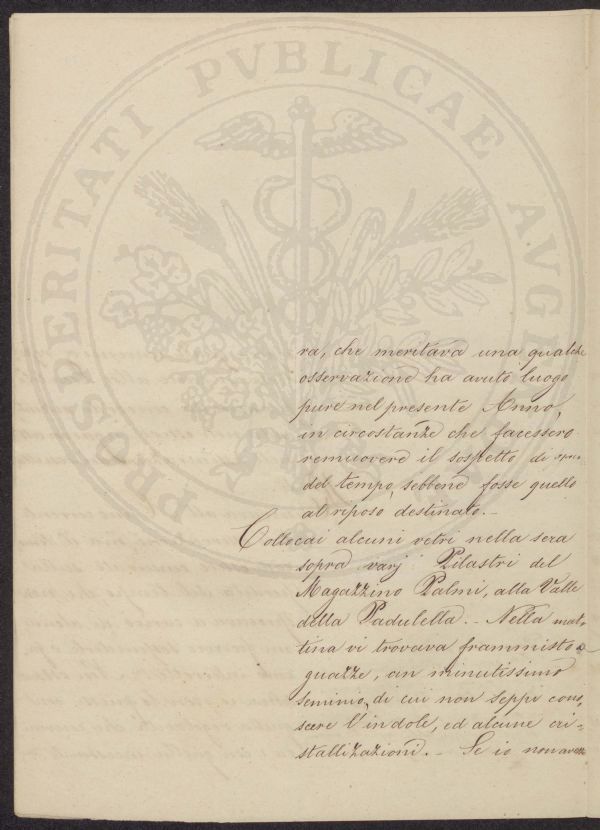 PROSPERITATI PVBLICAE AVGE
ra, che meritava una qualche
osservazione ha avuto luogo
pure nel presente Anno,
in circostanze che facessero
remuovere il sospetto di
del tempo, sebbene fosse quello
al riposo destinato.-
Collocai alcuni vetri nella sera
sopra varj Pilastri del
Magazzino Palmi, alla Valle
della Padulella.- Nella mat,
tina vi trovava frammisto a
guazze, un minutissimo
seminio, di cui non seppi cono,
scere l'indole, ed alcune cri=
stallizazioni.- Se io non avessi